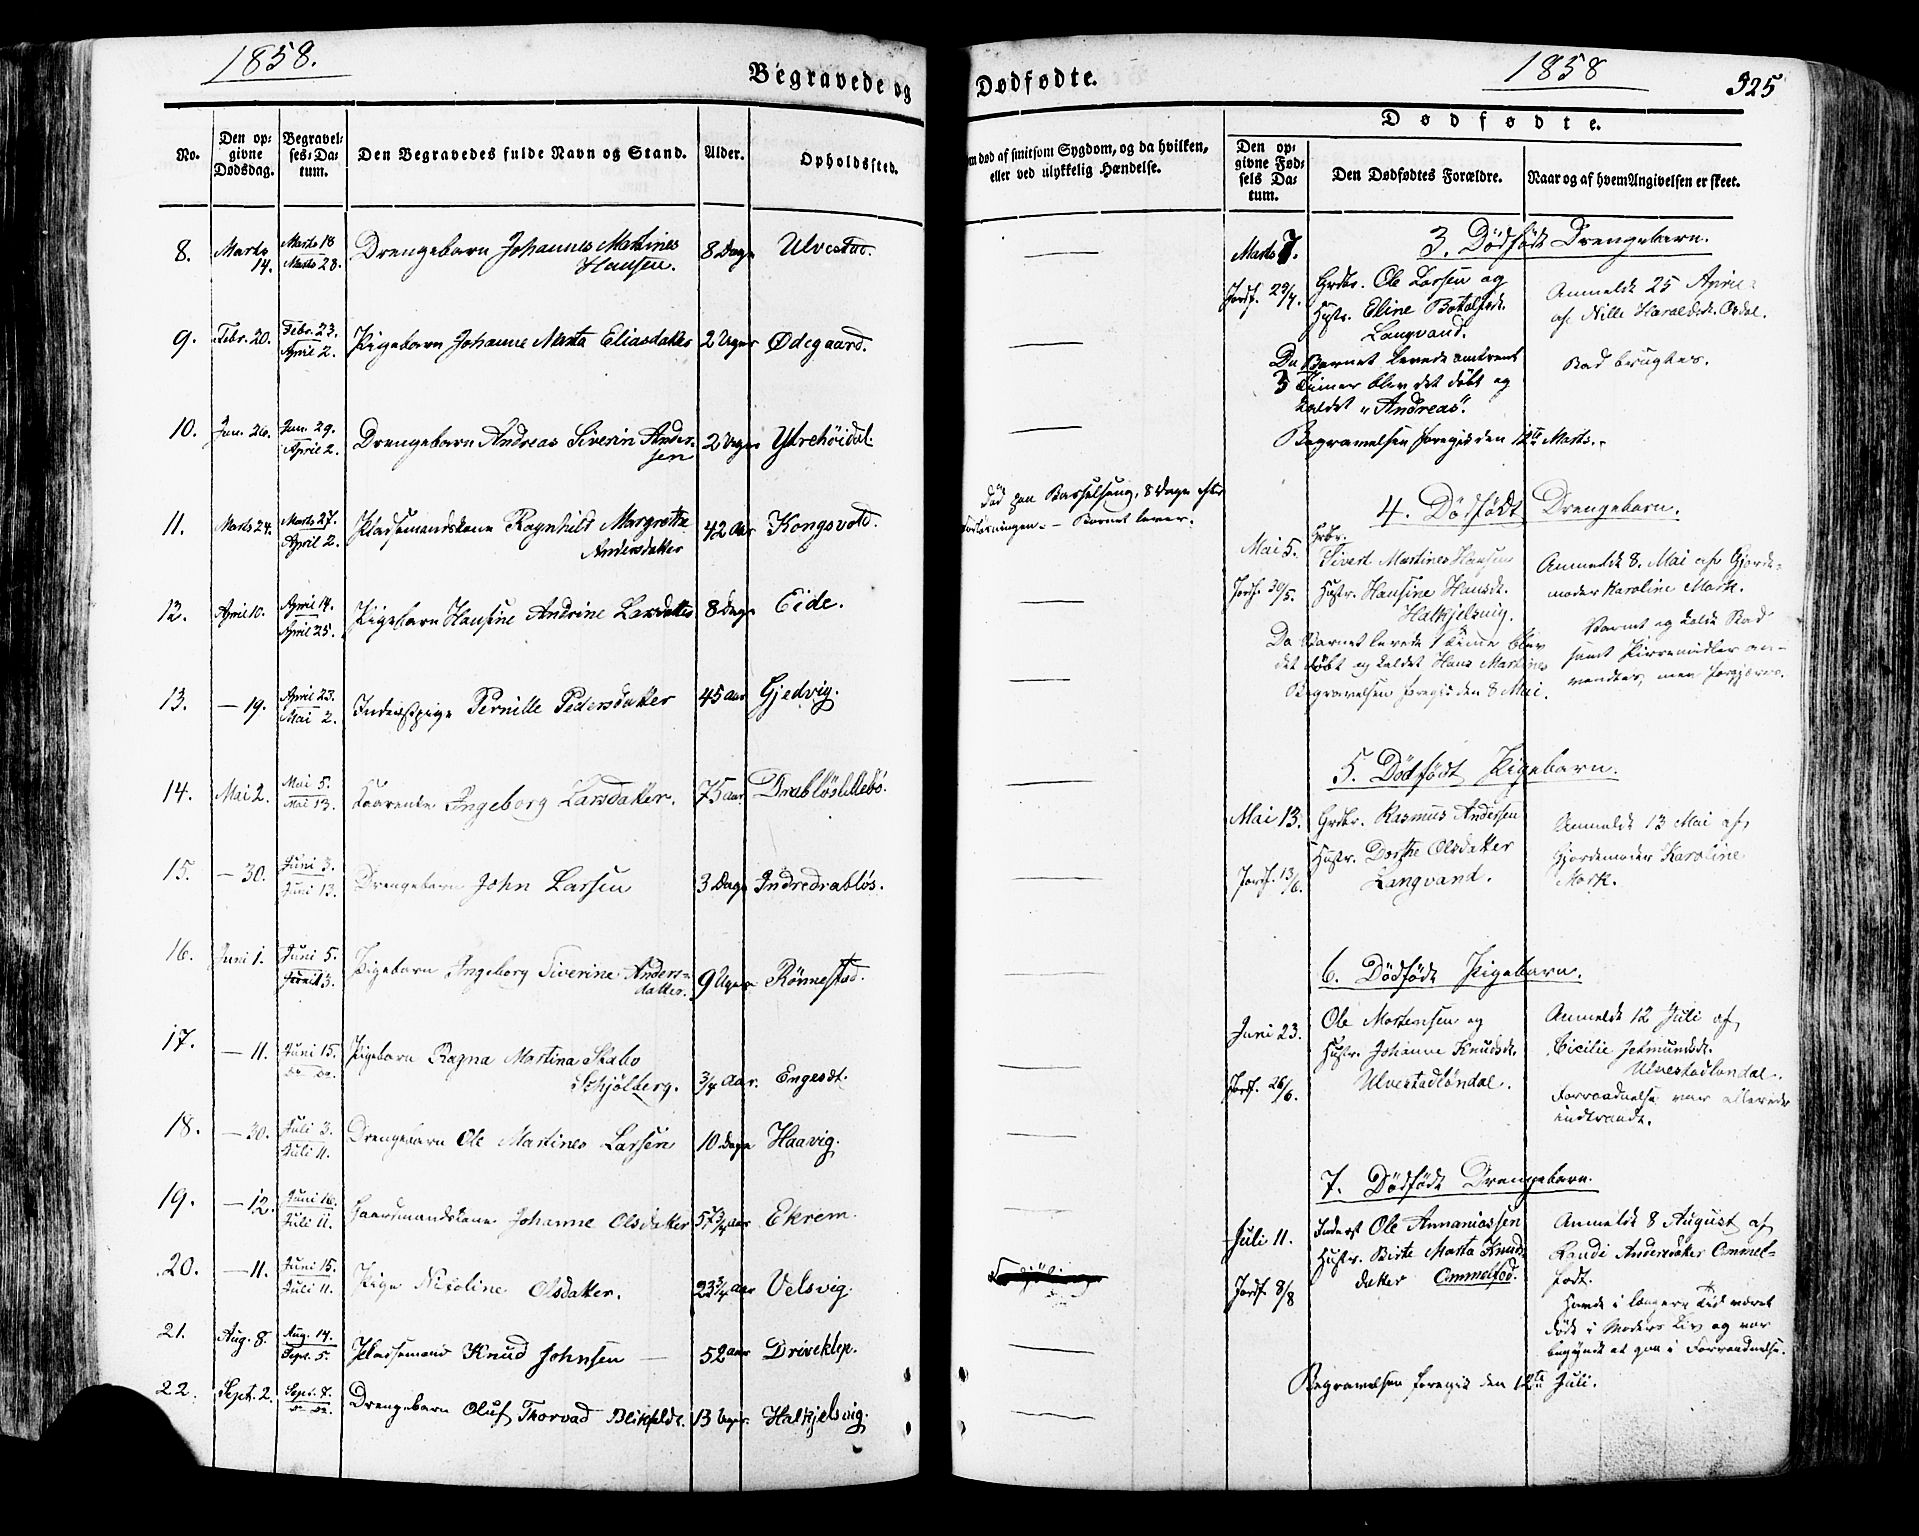 1858.
Begravede og
No.
Den opgivne Dødsdag.
Begravelses-Datum.
Den Begravedes fulde Navn og Stand.
Alder.
Opholdssted.
8. Marts 14. Marts 18 Marts 28. Drengebarn Johannes Martines Hansen. 8 Dage Ulvestad.
9. Febr. 20. Febr. 23. April 2. Pigebarn Johanne Marta Eliasdatter 2 Uger Ødegaard.
10. Jan. 26. Jan. 29. April 2. Drengebarn Andreas Siverin Andersen 2 Uger Ytrehöidal.
11. Marts 24. Marts 27. April 2. Pladsemandskone Ragnhild Margrethe Andersdatter 42 Aar Kongsvold.
12. April 10. April 14. April 25. Pigebarn Hansine Andrine Larsdatter 8 Dage Eide.
13. — 19. April 23. Mai 2. Inderstpige Pernille Pedersdatter 45 aar Gjedvig.
14. Mai 2. Mai 5. Mai 13. Kaarenke Ingeborg Larsdatter. 75 aar Drabløslillebö.
15. — 30. Juni 3. Juni 13. Drengebarn John Larsen 3 Dage Indredrabløs.
16. Juni 1. Juni 5. Juni 13. Pigebarn Ingeborg Siverine Andersdatter. 9 Uger Rönnestad.
17. — 11. Juni 15. Pigebarn Ragna Martina Stabo Schjölberg. 3/4 Aar. Engesdt.
18. — 30. Juli 3. Juli 11. Drengebarn Ole Martines Larsen 10 Dage Haavig.
19. — 12. Juni 16. Juli 11. Gaardmandskone Johanne Olsdatter 57 3/4 aar Ekrem.
20. — 11. Juni 15. Juli 11. Pige Nicoline Olsdatter. 23 3/4 aar Velsvig.
21. Aug. 8. Aug. 14. Sept. 5. Pladsemand Knud Johnsen — 52 aar Driveklep.
22. Sept. 2. Sept. 7. Drengebarn Oluf Thorvad Blikfeldt. 13 Uger. Halkjelsvig.
Dødfødte.
1858
325
om død af smitsom Sygdom, og da hvilken,
eller ved ulykkelig Hændelse.
Død paa Barselseng, 8 Dage efter
Forløsningen. — Barnet lever.
Dødfødte.
Den opgivne Fødsels Datum.
Den Dødfødtes Forældre.
Naar og af hvem Angivelsen er skeet.
3. Dödfödt Drengebarn.
Marts 7.
Jordf. 25/4.
Grdbr. Ole Larsen og
Hustr. Eline Botolfsdt.
Langvand.
Anmeldt 25 April
af Nille Haraldsdt. Osdal.
Bad brugtes.
Da Barnet levede omtrent
3 Timer blev det döbt og
kaldet "Andreas".
Begravelsen foregik den 12te Marts.
4. Dödfödt Drengebarn.
Mai 5.
Jordf. 30/5.
Grbr.
Sivert Martines Hansen
Hustr. Hansine Hansdt.
Halkjelsvig.
Anmeldt 8. Mai af Gjordemoder Karoline Mork.
Varmt og koldt Bad
samt Pirremidler anvendtes, men forgjæves.
Da Barnet levede 1 Time blev
det döbt og kaldet Hans Martines
Begravelsen foregik den 8 Mai.
5. Dödfödt Pigebarn.
Mai 13.
Jordf. 13/6.
Grdbr. Rasmus Andersen
Hustr. Dorthe Olsdatter
Langvand.
Anmeldt 13 Mai af
Gjordemoder Karoline
Mork.
6. Dödfödt Pigebarn.
Juni 23.
Jordf. 26/6.
Ole Mortensen og
Hustr. Johanne Knudsdt.
Ulvestadlöndal.
Anmeldt 12 Juli af
Cicilie Jetmundsdt.
Ulvestadlöndal.
Forraadnelse var allerede
indtraadt.
7. Dödfödt Drengebarn.
Juli 11.
Jordf. 8/8
Inderst Ole Annaniassen
Hustr. Birte Marta Knudsdatter Ommelfod.
Anmeldt 8 August af
Randi Andersdatter Ommelfodt.
Havde i længere Tid været
død i Moders Liv og var
begyndt at gaa i Forraadnelse.
Begravelsen foregik den 12te Juli.